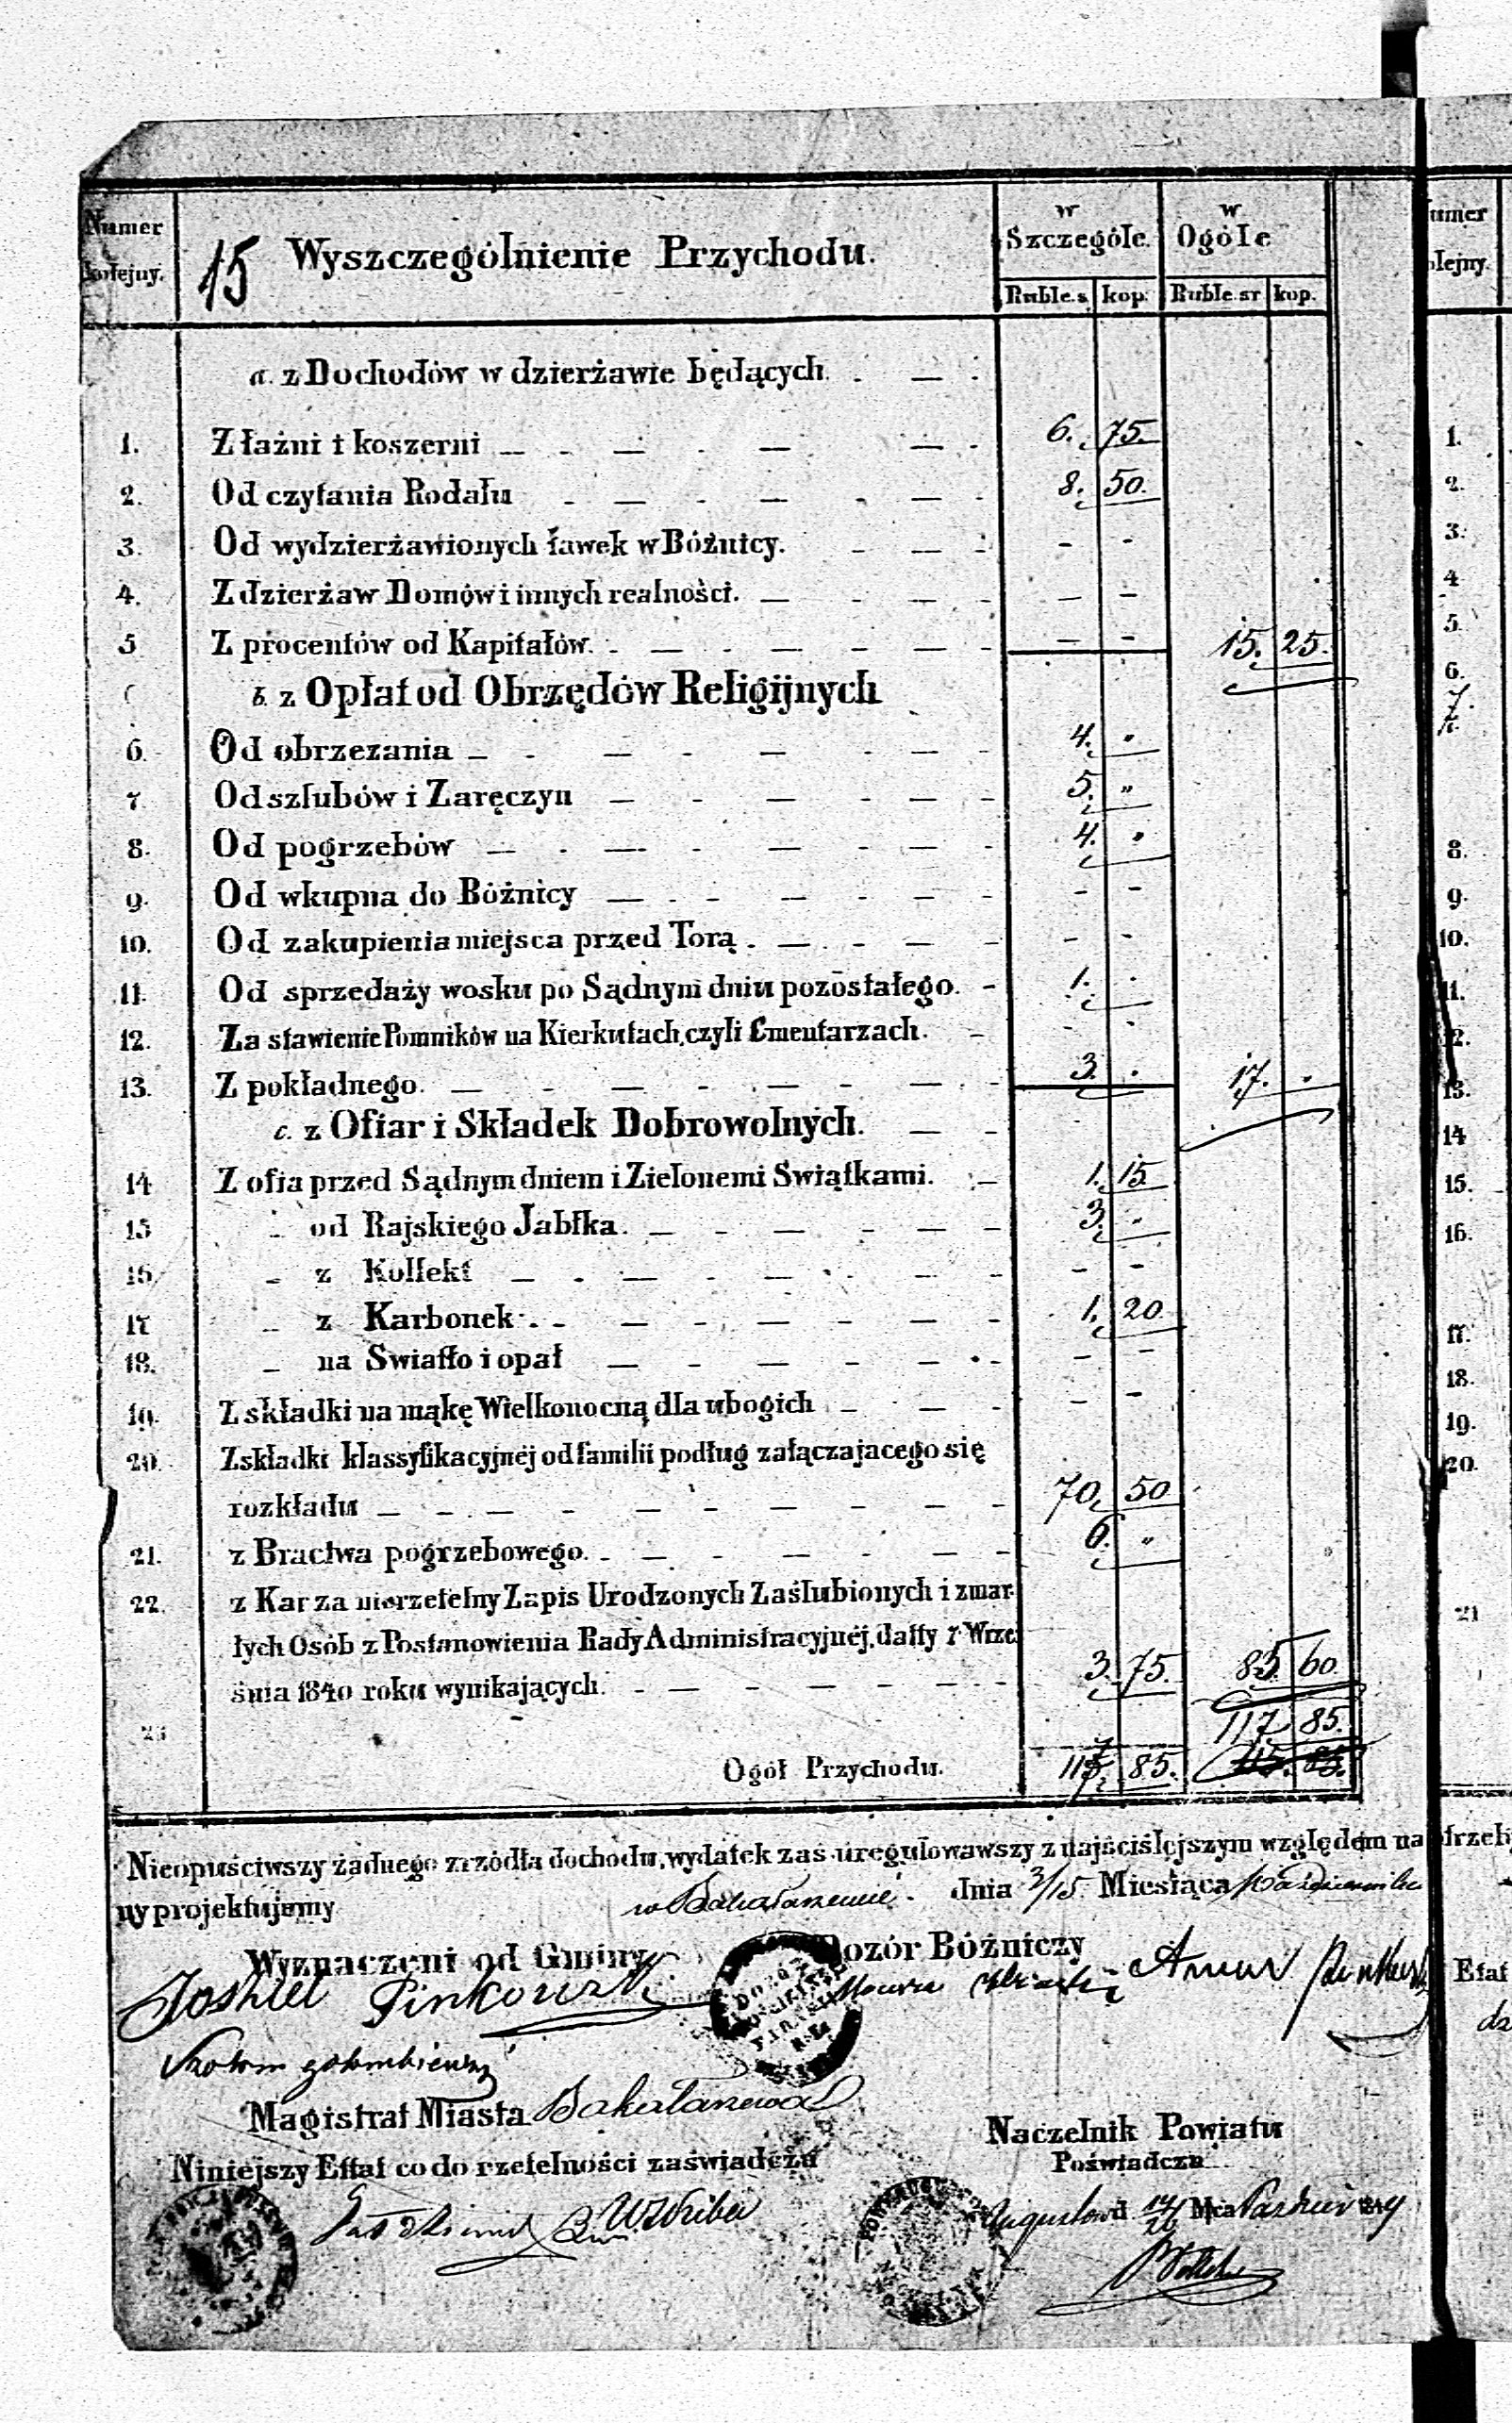 Numer kolejny.
15 Wyszczególnienie Przychodu.
w Szczególe. w Ogóle
Ruble.s kop: Ruble.sr kop.
a. z Dochodów w dzierżawie będących.
1. Z łaźni i koszerni 6. 75.
2. Od czytania Rodału 8. 50.
3. Od wydzierżawionych ławek w Bóżnicy. - -
4. Z dzierżaw Domów i innych realności. - -
5 Z procentów od Kapitałów. - - 15. 25.
b. z Opłat od Obrzędów Religijnych
6. Od obrzezania 4. "
7. Od szlubów i Zaręczyn 5. "
8. Od pogrzebów 4. "
9. Od wkupna do Bóżnicy - -
10. Od zakupienia miejsca przed Torą. - -
11. Od sprzedaży wosku po Sądnym dniu pozostałego. 1. .
12. Za stawienie Pomników na Kierkutach, czyli Cmentarzach. - -
13. Z pokładnego. 3. . 17. .
c. z Ofiar i Składek Dobrowolnych.
14 Z ofia przed Sądnym dniem i Zielonemi Swiątkami. 1. 15
15 " od Rajskiego Jabłka. 3. "
16. " z Kollekt - -
17 " z Karbonek. 1. 20
18. " na Swiatło i opał - -
19. Z składki na mąkę Wielkonocną dla ubogich - -
20. Z składki klassyfikacyjnéj od familii podług załączajacego się
rozkładu 70. 50
21. z Bractwa pogrzebowego. 6. "
22. z Kar za nierzetelny Zapis Urodzonych Zaślubionych i zmar-
łych Osób z Postanowienia Rady Administracyjnéj, datty 7 Wrze
śnia 1840 roku wynikających. 3. 75. 85. 60.
23 117 85.
Ogół Przychodu. 117 85. 115. 85.
Nieopuściwszy żadnego zrzódła dochodu, wydatek zaś uregulowawszy z najściślejszym względem na
ny projektujemy w Bakałarzewie. dnia 3/15 Miesiąca Października
Wyznaczeni od Gminy Dozór Bóżniczy
Joskiel Pinkowski
Magistrat Miasta Bakałarzewa
Naczelnik Powiatu
Niniejszy Ettat co do rzetelności zaświadcza
Poświadcza
Augustów d. 14/26 Mca
numer
olejny.
1.
2.
3.
4
5.
6.
7.
8.
9.
10.
11.
12.
13.
14
15.
16.
17.
18.
19.
20.
21
Etat